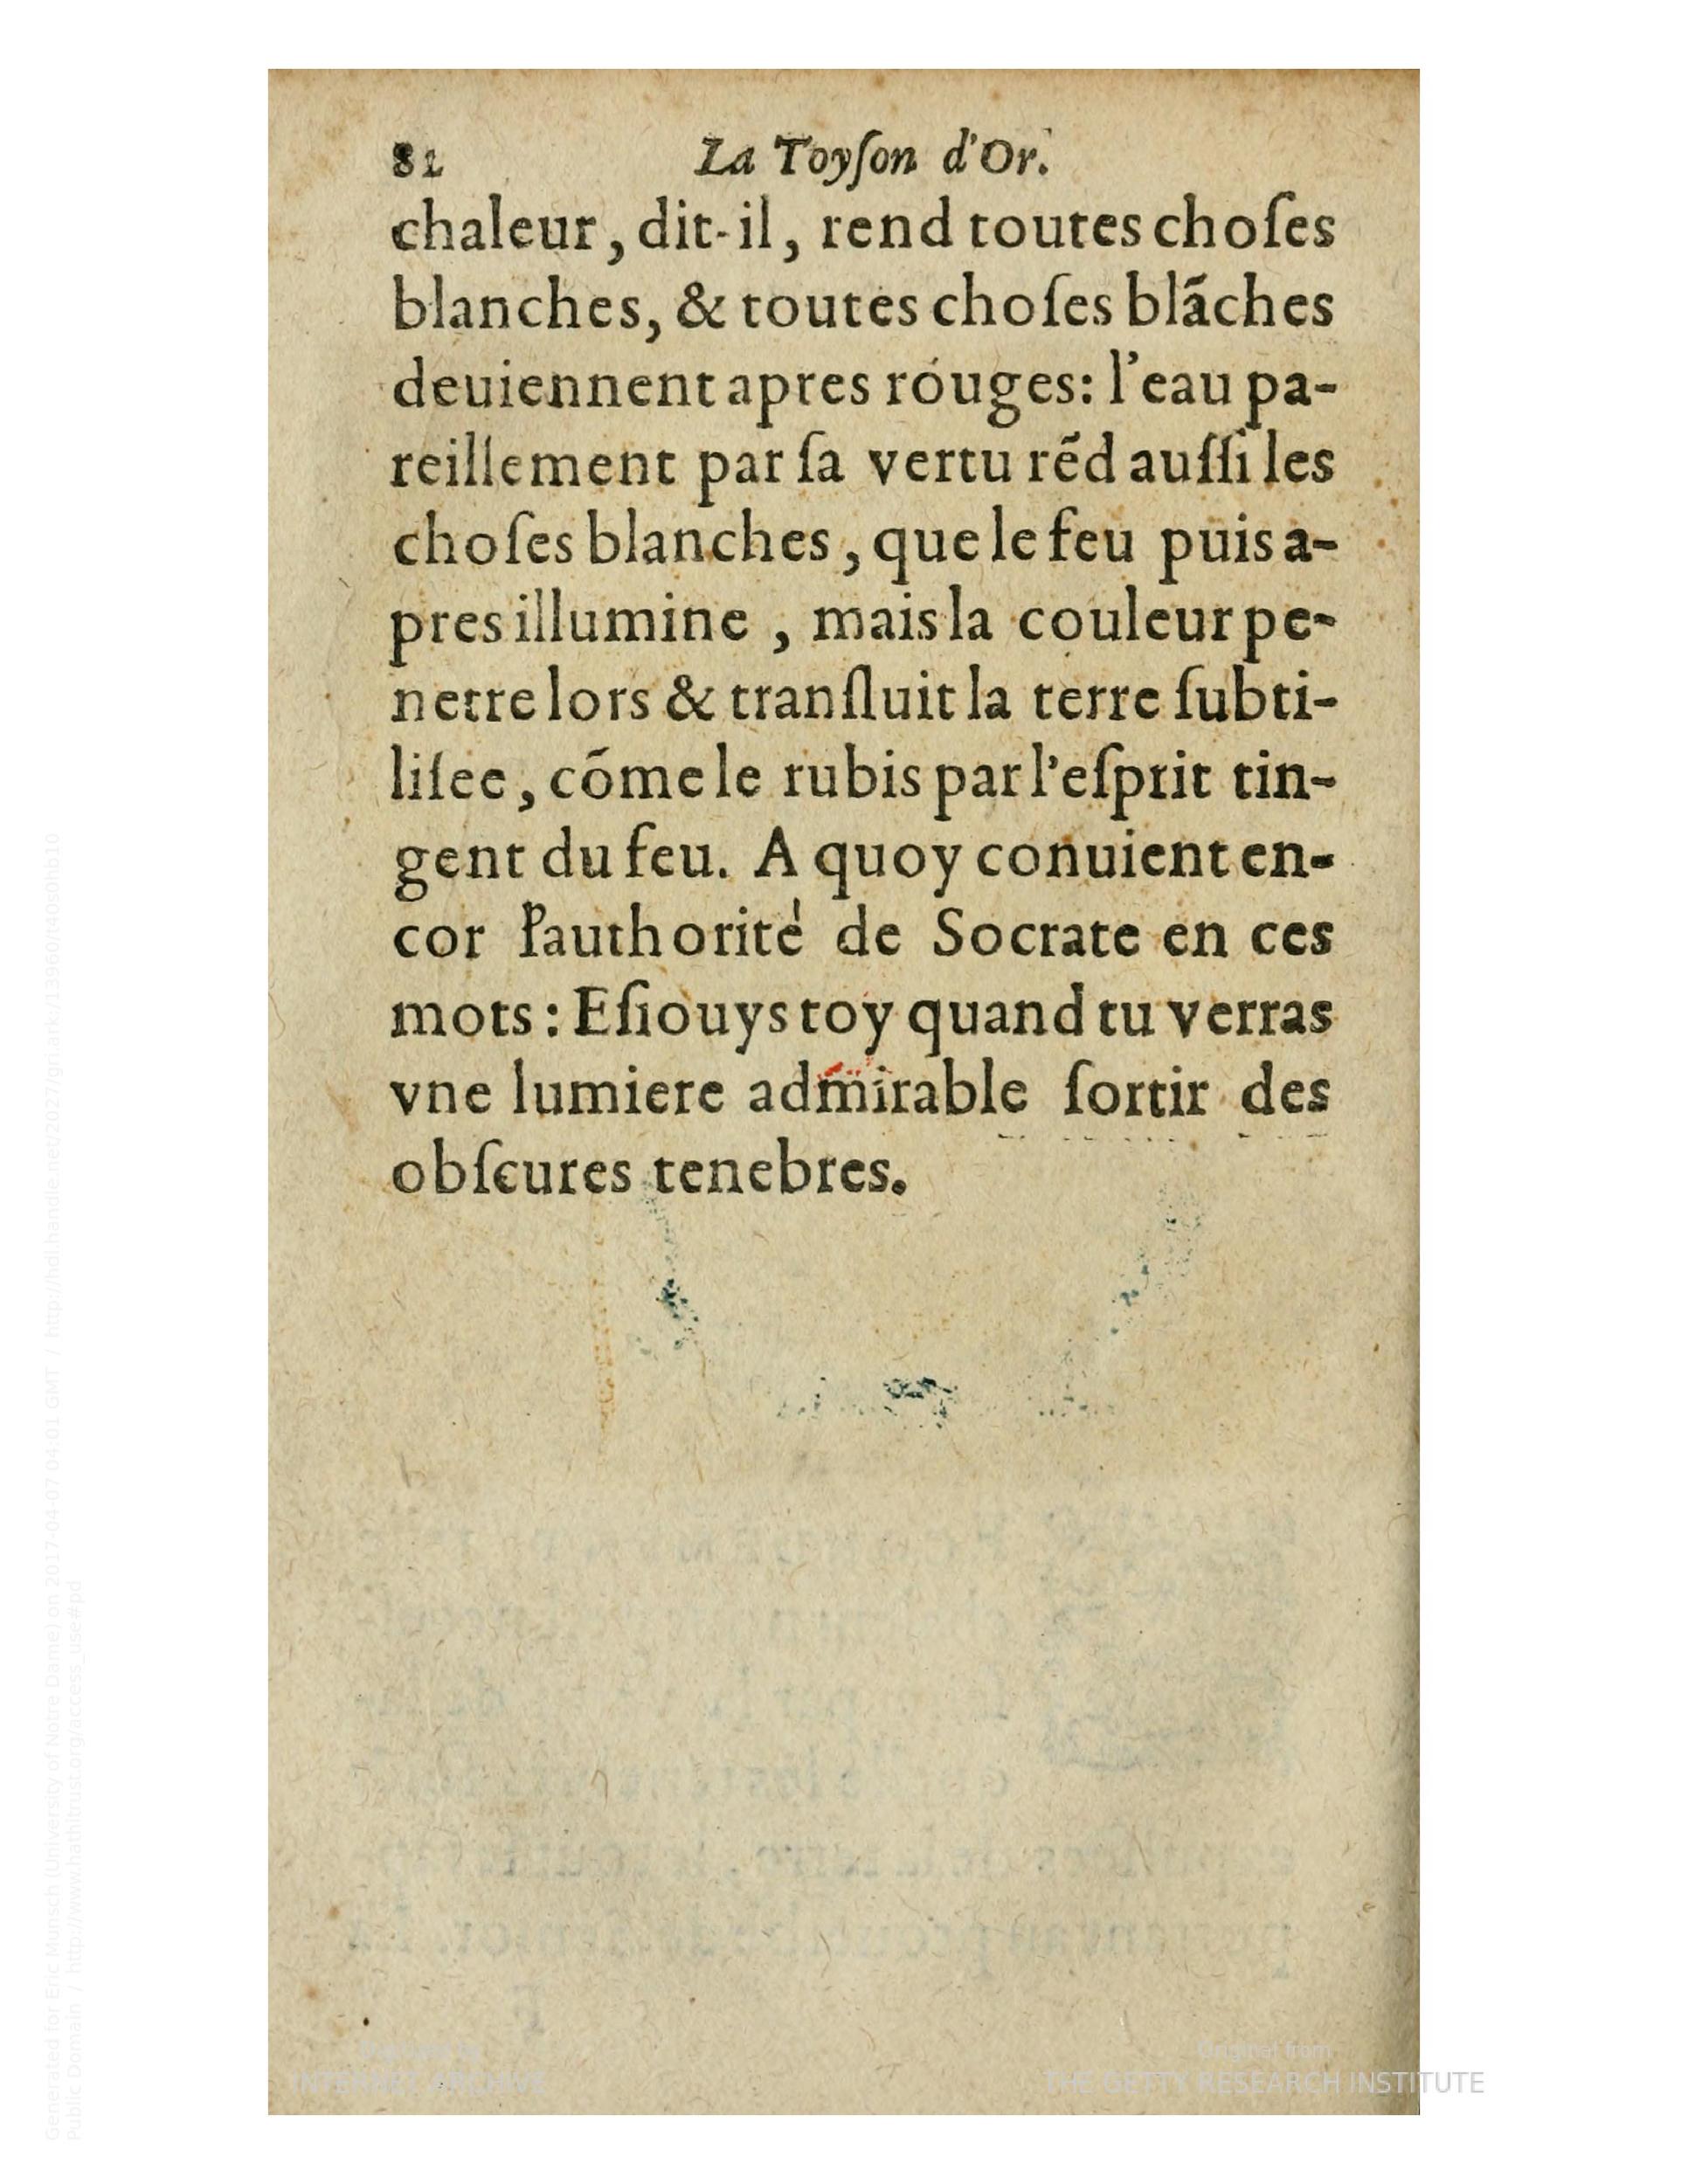 82 La Toyſon d'Or.
chaleur, dit-il, rend toutes choſes
blanches, & toutes choſes blãches
deuiennent apres rouges: l'eau pa-
reillement par ſa vertu rẽd auſſi les
choſes blanches, que le feu puis a-
pres illumine, mais la couleur pe-
netre lors & tranſluit la terre ſubti-
liſee, cõme le rubis par l'eſprit tin-
gent du feu. A quoy conuient en-
cor l'authorité de Socrate en ces
mots: Eſiouys toy quand tu verras
vne lumiere admirable ſortir des
obſcures tenebres.
Generated for Eric Munsch (University of Notre Dame) on 2017-04-07 04:01 GMT / http://hdl.handle.net/2027/gri.ark:/13960/t40s0hb10
Public Domain / http://www.hathitrust.org/access_use#pd
INTERNET ARCHIVE
Original from
THE GETTY RESEARCH INSTITUTE